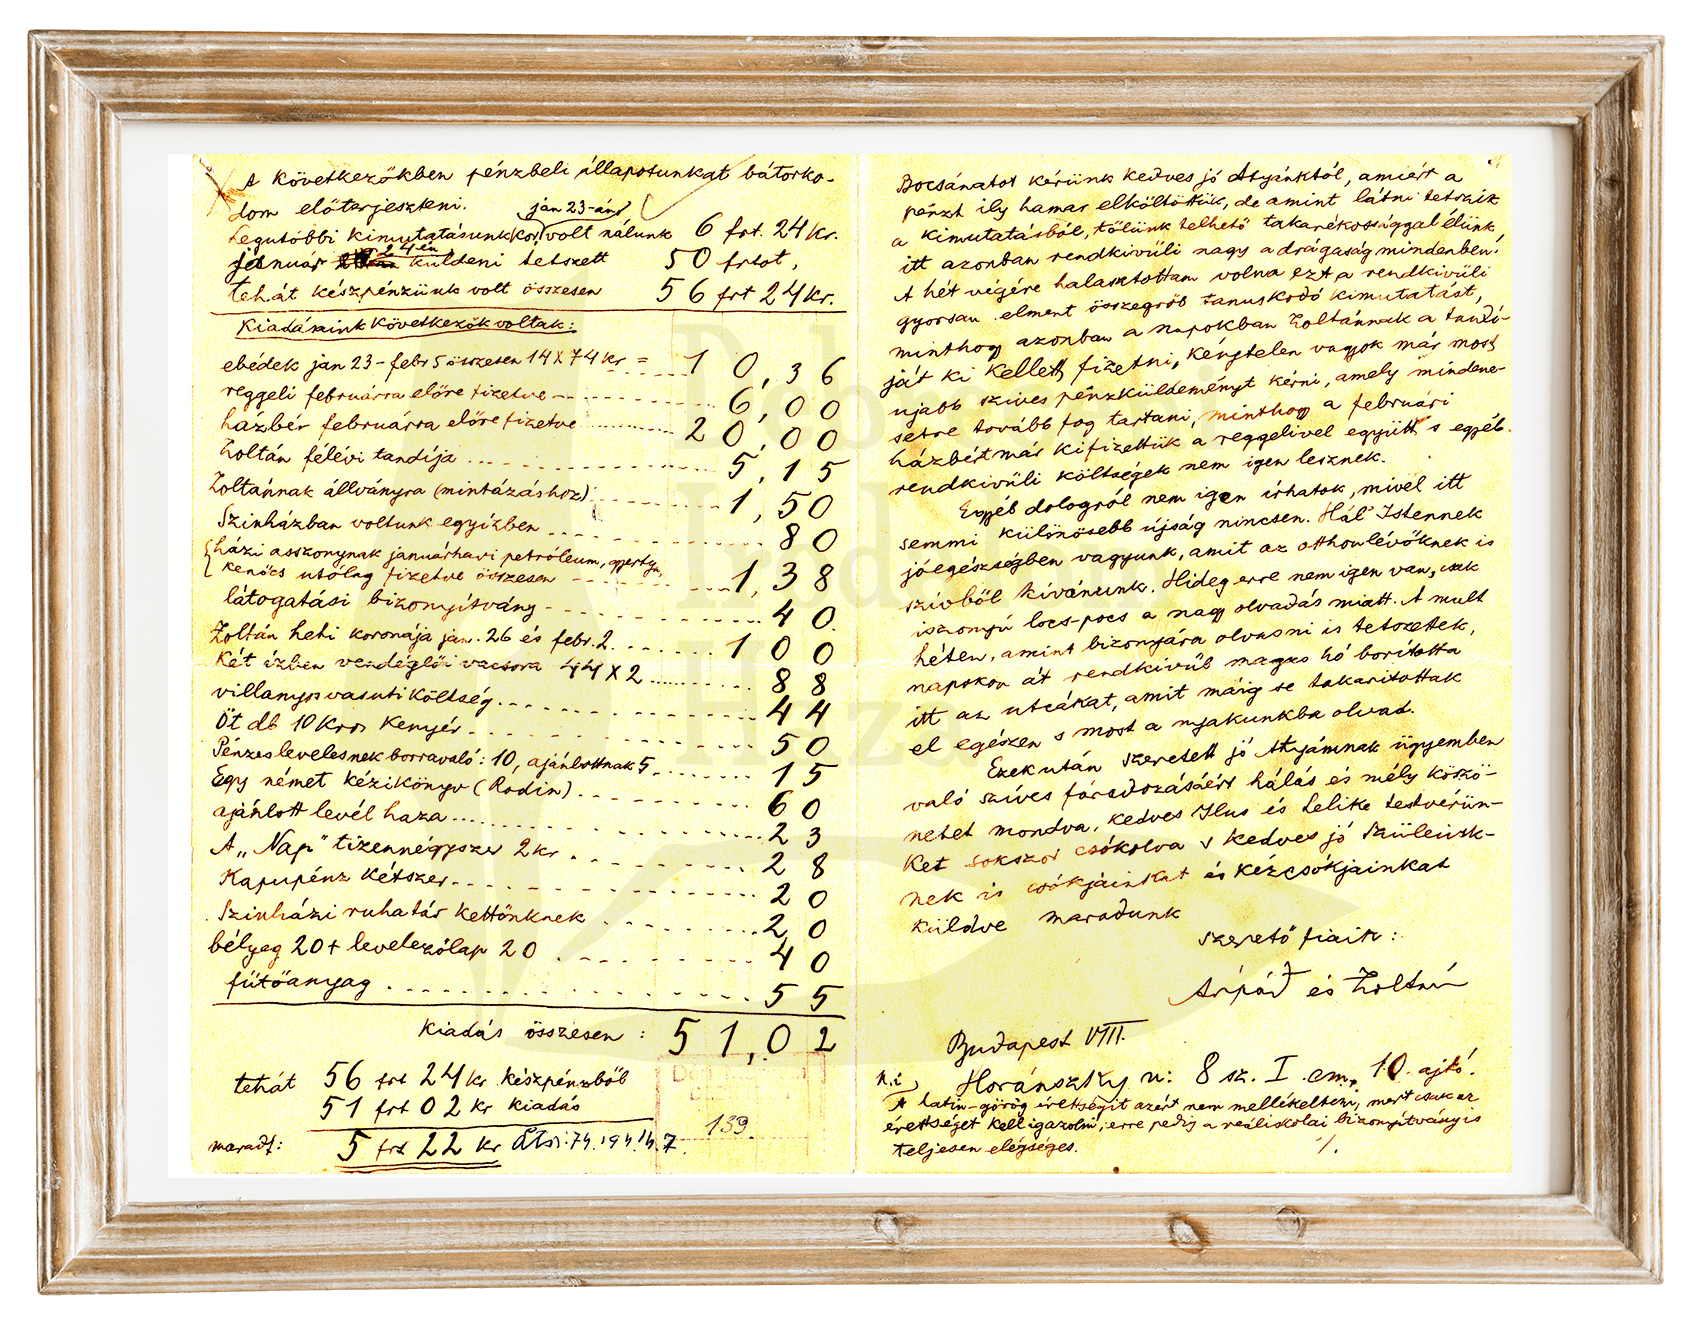 A következőkben pénzbeli állapotunkat bátorko-
dom előterjeszteni.
jan 23-án
Legutóbbi kimutatásunkkor volt nálunk 6 frt. 24 kr.
24én
január küldeni tetszett 50 frtot,
tehát készpénzünk volt összesen 56 frt 24 kr.
Kiadásaink következők voltak:
ebédek jan 23-febr 5 összesen 14X74 kr = 10,36
reggeli februárra előre fizetve 6,00
házbér februárra előre fizetve 20,00
Zoltán félévi tandíja 5,15
Zoltánnak állványra (mintázáshoz) 1,50
Szinházban voltunk egyízben 80
házi asszonynak januárhavi petróleum, gyertya,
kenőcs utólag fizetve összesen 1,38
látogatási bizonyítvány 40
Zoltán heti koronája jan. 26 és febr. 2. 1 00
Két ízben vendéglői vacsora 44X2 88
villanyosvasuti költség 44
Öt db 10 kros kenyér 50
Pénzeslevelesnek borravaló: 10, ajánlottnak 5 15
Egy német kézikönyv (Rodin) 60
ajánlott levél haza 23
A „Nap" tizennégyszer 2 kr 28
Kapupénz kétszer 20
Szinházi ruhatár kettőnknek 20
bélyeg 20 + levelezőlap 20 40
fűtőanyag 55
Kiadás összesen : 51,02
tehát 56 frt 24 kr készpénzből
51 frt 02 kr kiadás
maradt: 5 frt 22 kr
139.
Bocsánatot kérünk kedves jó Atyánktól, amiért a
pénzt ily hamar elköltöttük, de amint látni tetszik
a kimutatásból, tőlünk telhető takarékossággal élünk,
itt azonban rendkivüli nagy a drágaság mindenben!
A hét végére halasztottam volna ezt a rendkivüli
gyorsan elment összegről tanuskodó kimutatást,
minthogy azonban a napokban Zoltánnak a tandí-
ját ki kellett fizetni, kénytelen vagyok már most
ujabb szives pénzküldeményt kérni, amely mindene-
setre tovább fog tartani, minthogy a februári
házbért már kifizettük a reggelivel együtt s egyéb
rendkivüli költségek nem igen lesznek.
Egyéb dologról nem igen írhatok, mivel itt
semmi különösebb újság nincsen. Hál' Istennek
jó egészségben vagyunk, amit az otthonlévőknek is
szívből kívánunk. Hideg erre nem igen van, csak
iszonyú locs-pocs a nagy olvadás miatt. A mult
héten, amint bizonyára olvasni is tetszettek,
napokon át rendkivül magas hó borította
itt az utcákat, amit máig se takarítottak
el egészen s most a nyakunkba olvad.
Ezek után szeretett jó Atyámnak ügyemben
való szíves fáradozásáért hálás és mély köszö-
netet mondva, kedves Ilus és Lelike testvérün-
ket sokszor csókolva s kedves jó Szüleink-
nek is csókjainkat és kézcsókjainkat
küldve maradunk
szerető fiaik:
Árpád és Zoltán
Budapest VIII.
Horánszky u: 8 sz. I. em. 10. ajtó.
A latin-görög érettségit azért nem mellékeltem, mert csak az
érettséget kell igazolni, erre pedig a reáliskolai bizonyítvány is
teljesen elégséges.